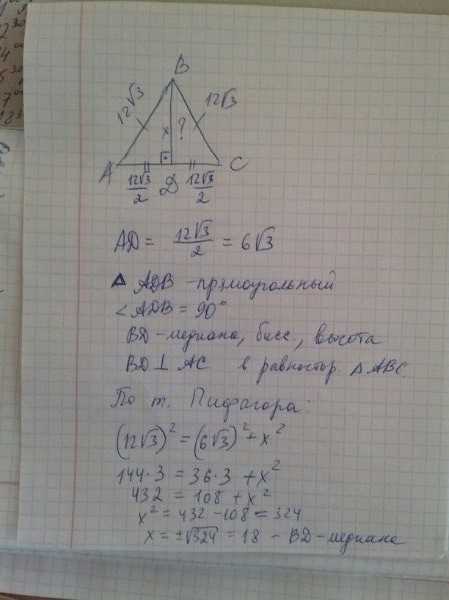 B
12√3
12√3
x
?
A
D
C
12√3/2
12√3/2
AD = 12√3/2 = 6√3
△ ADB - прямоугольный
∠ADB = 90°
BD - медиана, бисс., высота
BD ⊥ AC в равностор. △ ABC
По т. Пифагора:
(12√3)² = (6√3)² + x²
144·3 = 36·3 + x²
432 = 108 + x²
x² = 432 - 108 = 324
x = ±√324 = 18 - BD - медиана